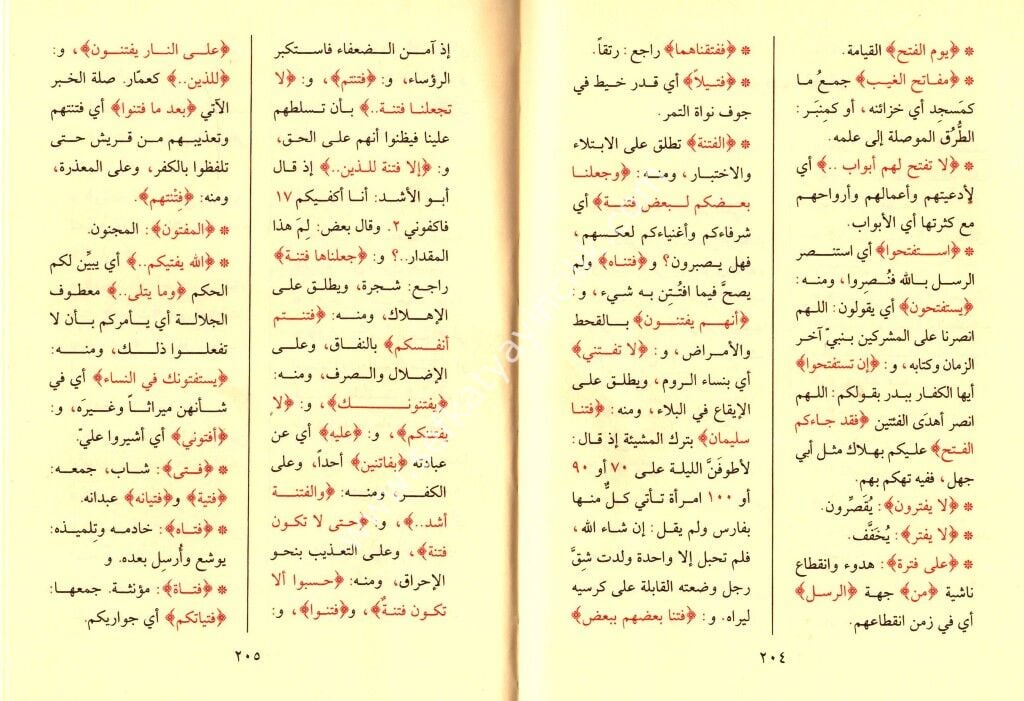 * ﴿يوم الفتح﴾ القيامة.
* ﴿مفاتح الغيب﴾ جمعُ ما
كمَسجد أي خزائنه، أو كمِنبَر:
الطُّرُق الموصلة إلى علمه.
* ﴿لا تفتح لهم أبواب ..﴾ أي
لأدعيتهم وأعمالهم وأرواحهم
مع كثرتها أي الأبواب.
* ﴿استفتحوا﴾ أي استنصر
الرسل بالله فنُصِروا، ومنه:
﴿يستفتحون﴾ أي يقولون: اللهم
انصرنا على المشركين بنبيّ آخر
الزمان وكتابه، و: ﴿إن تستفتحوا﴾
أيها الكفار ببدر بقولكم: اللهم
انصر أهدَى الفئتين ﴿فقد جاءكم
الفتح﴾ عليكم بهلاك مثل أبي
جهل، ففيه تهكم بهم.
* ﴿لا يفترون﴾: يُقَصِّرون.
* ﴿لا يفتر﴾: يُخَفَّف.
* ﴿على فترة﴾: هدوء وانقطاع
ناشية ﴿من﴾ جهة ﴿الرسل﴾
أي في زمن انقطاعهم.
* ﴿ففتقناهما﴾ راجع: رتقاً.
* ﴿فتيلاً﴾ أي قدر خيط في
جوف نواة التمر.
* ﴿الفتنة﴾ تطلق على الابتلاء
والاختبار، ومنه: ﴿وجعلنا
بعضكم لبعض فتنة﴾ أي
شرفاءكم وأغنياءكم لعكسهم،
فهل يصبرون؟ و﴿فتناه﴾ ولم
يصحَّ فيما افتُتِن به شيء، و:
﴿أنهم يفتنون﴾ بالقحط
والأمراض، و: ﴿لا تفتني﴾
أي بنساء الروم، ويطلق على
الإيقاع في البلاء، ومنه: ﴿فتنا
سليمان﴾ بترك المشيئة إذ قال:
لأطوفَنَّ الليلة على ٧٠ أو ٩٠
أو ١٠٠ امرأة تأتي كلٌّ منها
بفارس ولم يقل: إن شاء الله،
فلم تحبل إلا واحدة ولدت شِقَّ
رجل وضعته القابلة على كرسيه
ليراه. و: ﴿فتنا بعضهم ببعض﴾
٢٠٤
إذ آمن الضعفاء فاستكبر
الرؤساء، و: ﴿فتنتم﴾، و: ﴿لا
تجعلنا فتنة..﴾ بأن تسلطهم
علينا فيظنوا أنهم على الحق،
و: ﴿إلا فتنة للذين..﴾ إذ قال
أبو الأشد: أنا أكفيكم ١٧
فاكفوني ٢. وقال بعض: لِمَ هذا
المقدار..؟ و: ﴿جعلناها فتنة﴾
راجع: شجرة، ويطلق على
الإهلاك، ومنه: ﴿فتنتم
أنفسكم﴾ بالنفاق، وعلى
الإضلال والصرف، ومنه:
﴿يفتنونك﴾، و: ﴿لا
يفتننكم﴾، و: ﴿عليه﴾ أي عن
عبادته ﴿بفاتنين﴾ أحداً، وعلى
الكفر، ومنه: ﴿والفتنة
أشد..﴾، و: ﴿حتى لا تكون
فتنة﴾، وعلى التعذيب بنحو
الإحراق، ومنه: ﴿حسبوا ألا
تكون فتنةٌ﴾، و﴿فتنوا﴾، و:
﴿على النار يفتنون﴾، و:
﴿للذين..﴾ كعمّار. صلة الخبر
الآتي ﴿بعد ما فتنوا﴾ أي فتنتهم
وتعذيبهم من قريش حتى
تلفظوا بالكفر، وعلى المعذرة،
ومنه: ﴿فِتْنتهم﴾.
* ﴿المفتون﴾: المجنون.
* ﴿الله يفتيكم..﴾ أي يبيِّن لكم
الحكم ﴿وما يتلى..﴾ معطوف
الجلالة أي يأمركم بأن لا
تفعلوا ذلك، ومنه:
﴿يستفتونك في النساء﴾ أي في
شأنهن ميراثاً وغيرَه، و:
﴿أفتوني﴾ أي أشيروا عليّ.
* ﴿فتى﴾: شاب، جمعه:
﴿فتية﴾ و﴿فتيانه﴾ عبدانه.
* ﴿فتاه﴾: خادمه وتلميذه:
يوشع وأُرسِل بعده. و
* ﴿فتاة﴾: مؤنثة. جمعها:
﴿فتياتكم﴾ أي جواريكم.
٢٠٥